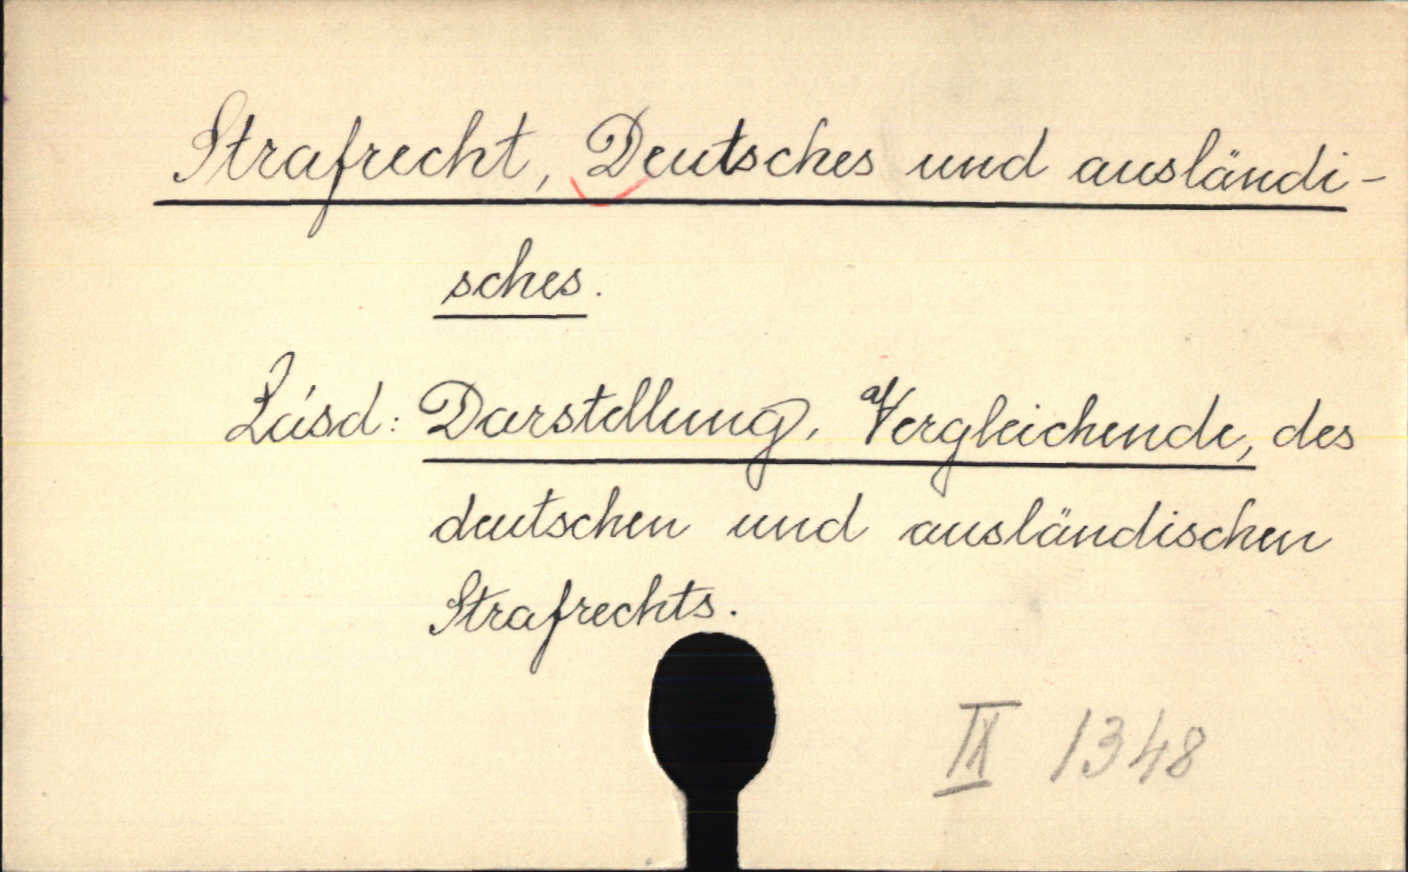 Strafrecht, Deutsches und ausländi-
sches.
Lásd: Darstellung, Vergleichende, des
deutschen und ausländischen
Strafrechts.
1348